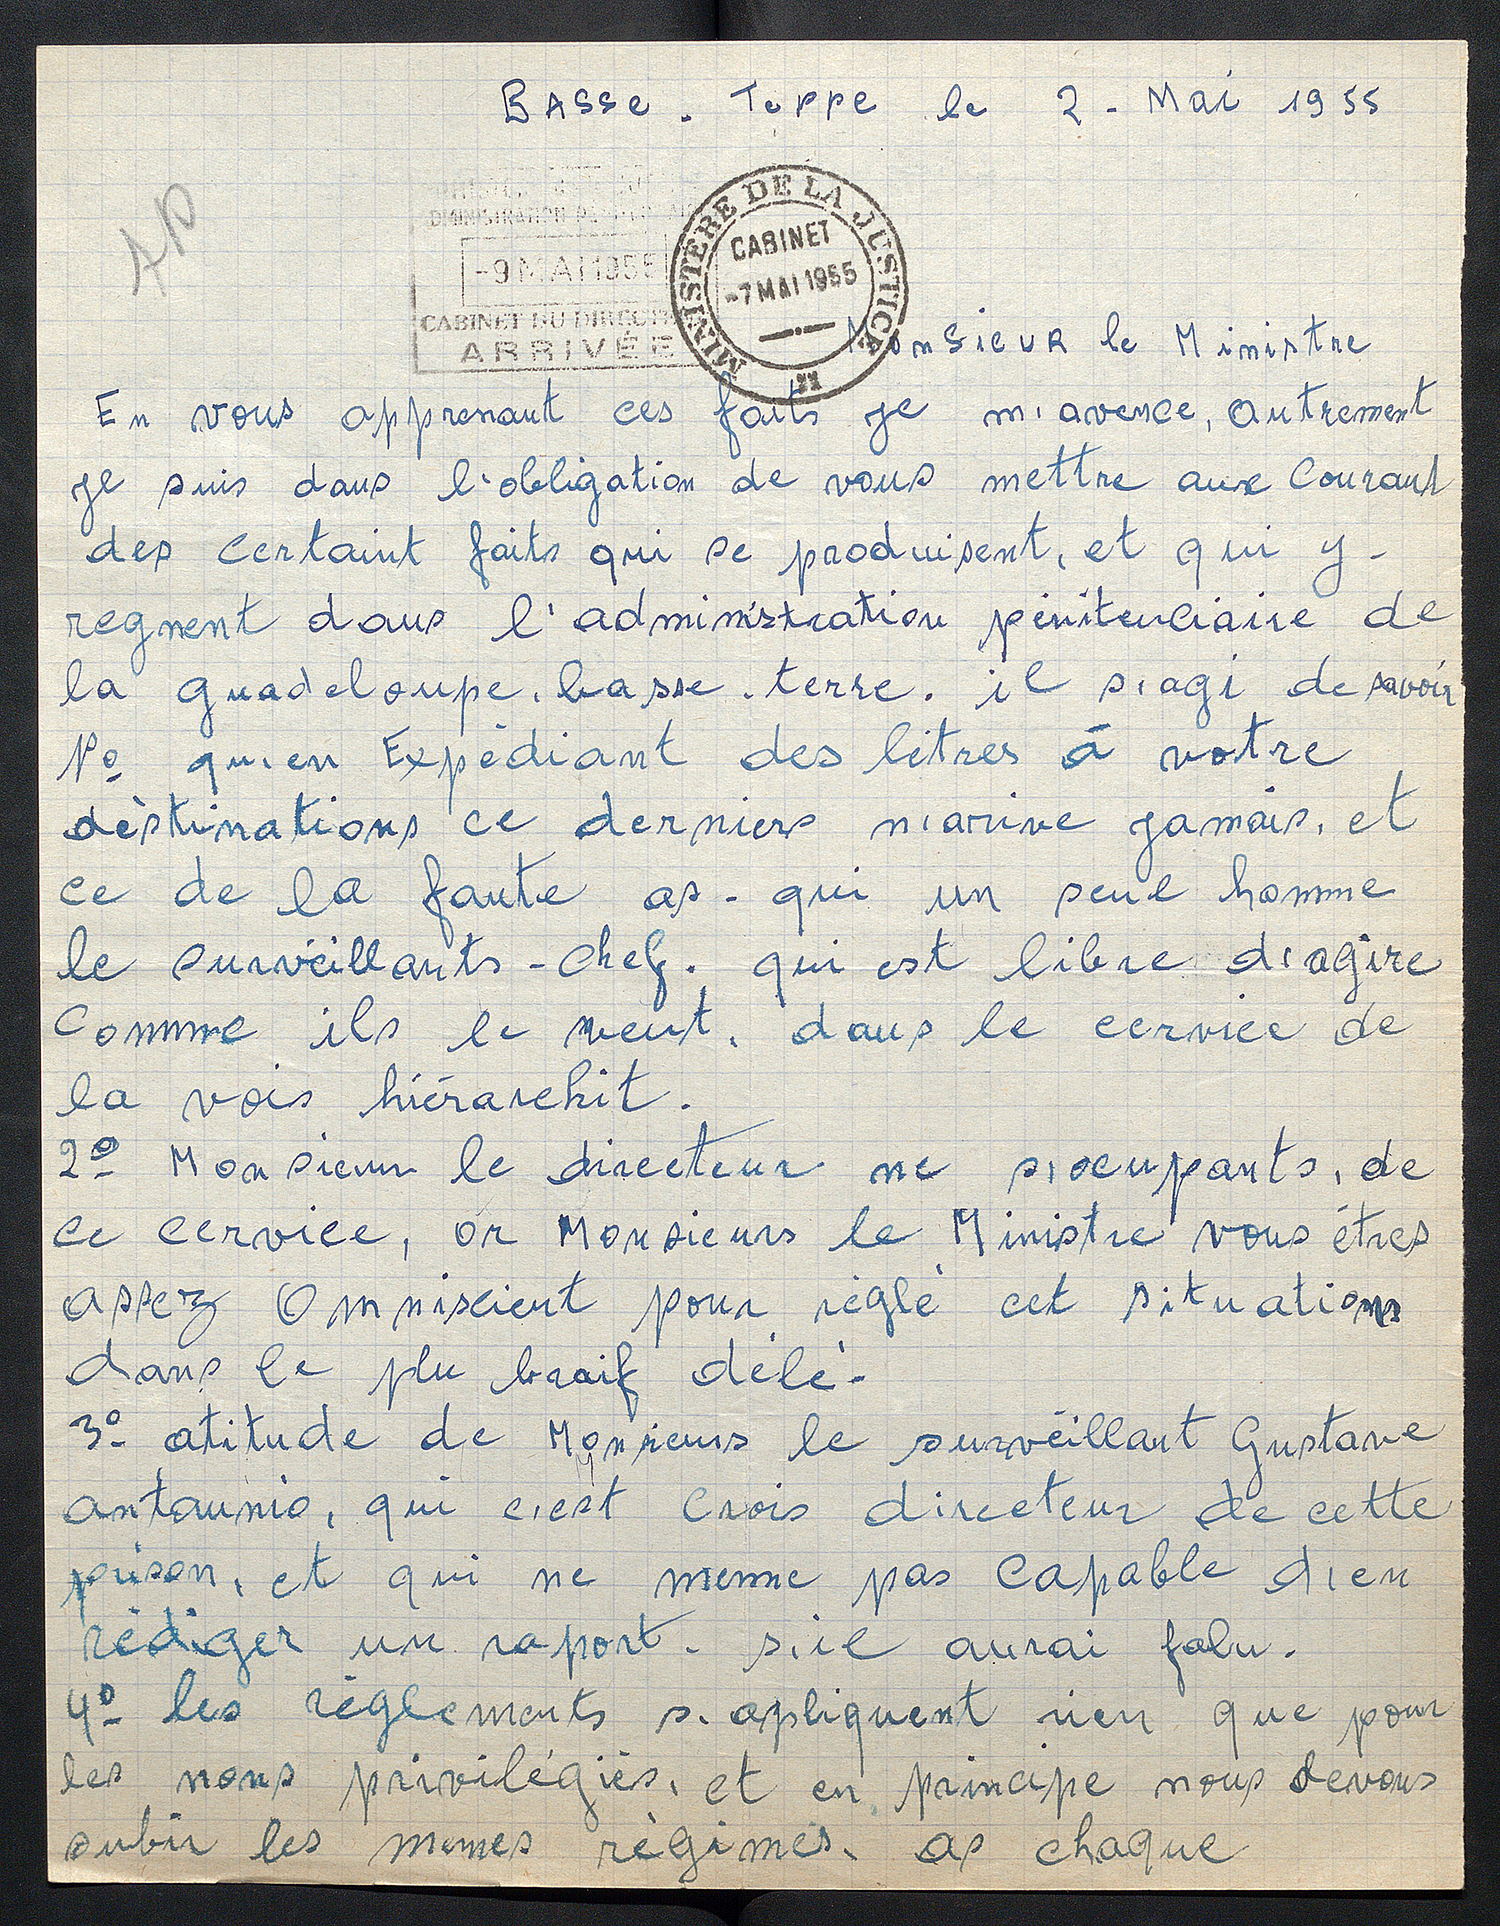 BASSE. Teppe le 2 - Mai 1955
AP
ADMINISTRATION
-9 MAI 1955
CABINET DU DIRECTEUR
ARRIVÉE
MINISTÈRE DE LA JUSTICE
CABINET
-7 MAI 1955
Monsieur le Ministre
En vous apprenant ces faits je m'avence, autrement
je suis dans l'obligation de vous mettre aux Courant
des certaint faits qui se produisent, et qui y-
regnent dans l'administration pénitenciaire de
la guadeloupe. basse. terre. il s'agi de savoir
1º qu'en Expédiant des lètres à votre
dèstinations ce derniers n'arive jamais, et
ce de la faute as-qui un seul homme
le survéillants-chef. qui est libre d'agire
Comme ils le veut. dans le cervice de
la vois hiérarchit.
2º Monsieur le directeur ne s'ocupants, de
ce cervice, or Monsieurs le Ministre vous étres
assez Omniscient pour réglé cet situations
dans le plu braif délé.
3º atitude de Monsieurs le survéillant Gustave
antaunio, qui c'est Crois directeur de cette
prison, et qui ne meme pas Capable d'en
rédiger un raport. s'il aurai falu.
4º les règlements s'apliquent rien que pour
les nons privilégiés, et en principe nous devons
subir les memes règimes. as chaque